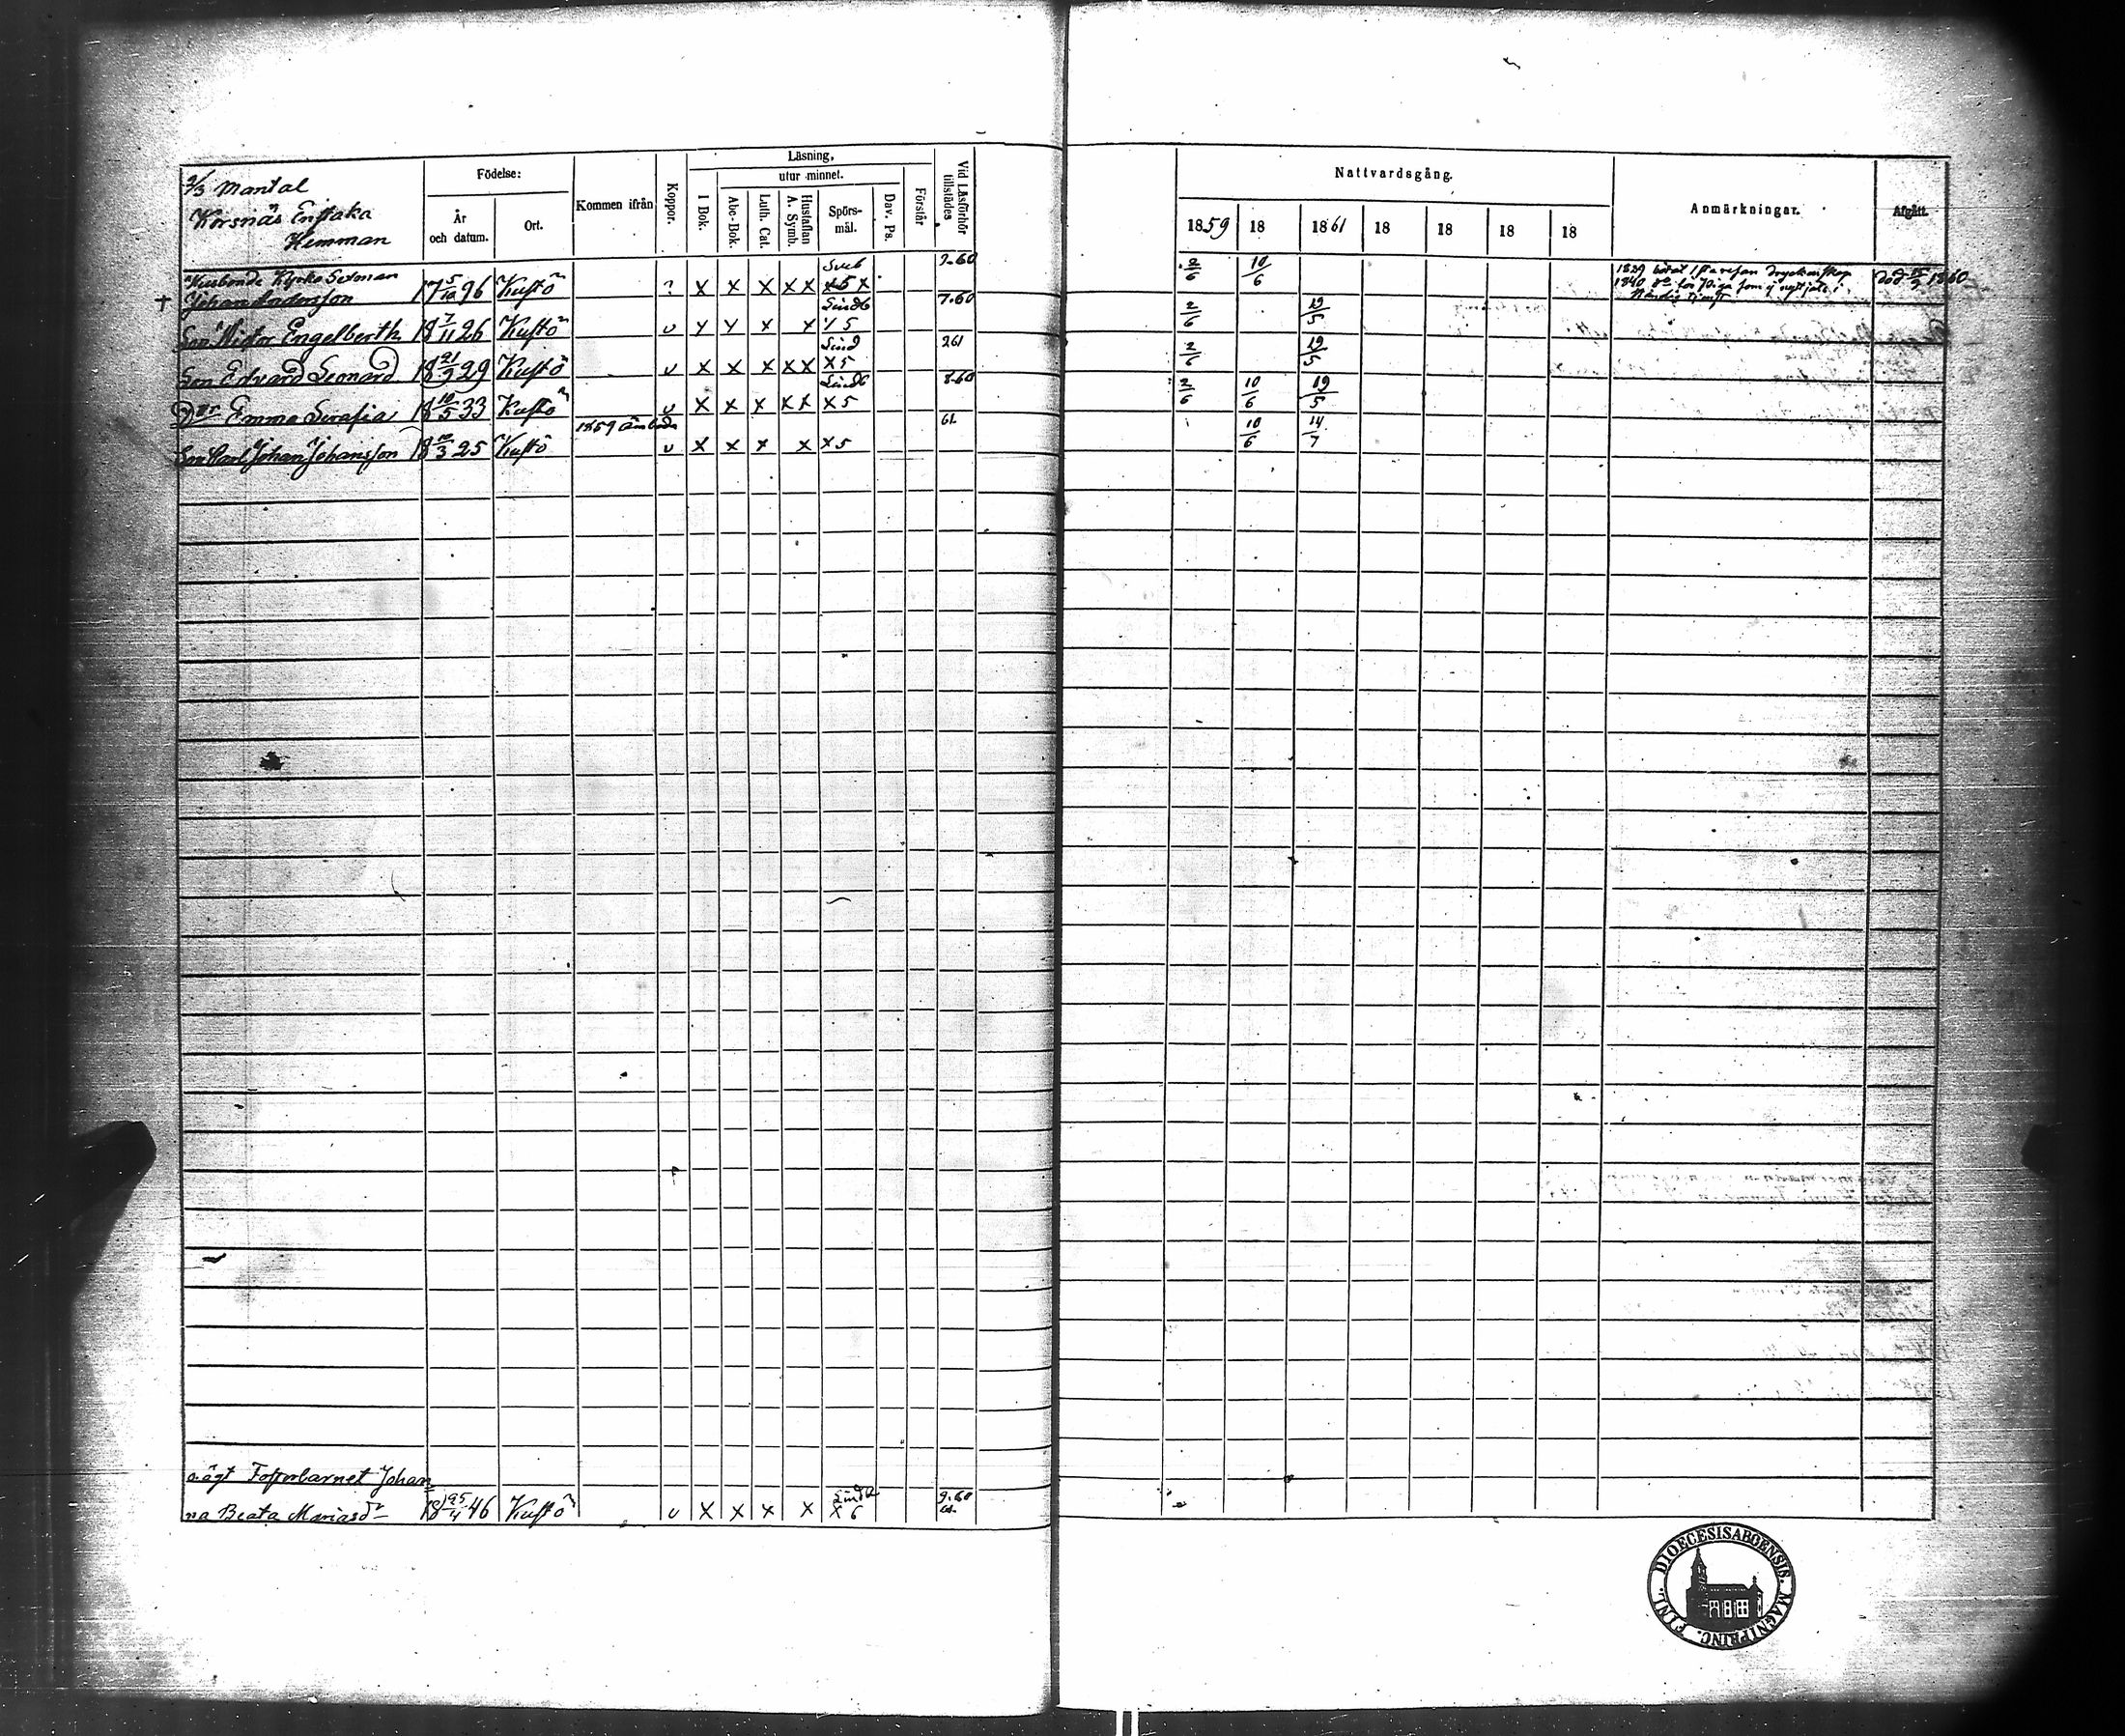 2/3 Mantal
Korsnäs Enstaka
Hemman
Födelse:
År
och datum.
Ort.
Kommen ifrån
Koppor.
Läsning,
utur minnet.
I Bok.
Abc-Bok.
Luth. Cat.
Hustaflan
A. Symb.
Spörs-
mål.
Dav. Ps.
Förstår
Vid Läsförhör
tillstädes
Nattvardsgång.
1859 18 1861 18 18 18 18
Anmärkningar.
Afgått.
Husbonde Kyrko Sexman
Johan Andersson 17 5/10 96 Kustö ? X X X X X Sveb X 5 X 9.60 2/6 10/6 död 1860
Son Victor Engelberth 18 7/11 26 Kustö v Y Y x x 5 7.60 2/6 19/5
Son Edvard Leonard 18 21/9 29 Kustö v X X X X X X 5 261 2/6 19/5
Dtr Emma Serafia 18 10/5 33 Kustö v X X X X X X 5 8.60 2/6 10/6 19/5
Son Carl Johan Johansson 18 10/3 25 Kustö 1859 v X X X X X 5 61. 10/6 14/7
o.ägt Fosterbarnet Johan
na Beata Mariasdr 18 25/4 46 Kustö v X X X X X 6 9.60
DIOECESIS ABOENSIS. MAGNI PRINC. FINL.